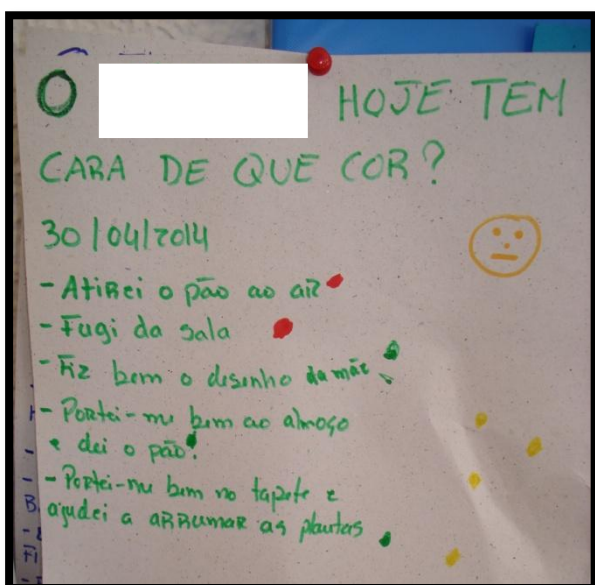 O HOJE TEM
CARA DE QUE COR?
30/04/2014
- Atirei o pão ao ar
- Fugi da sala
- Fiz bem o desenho da mãe
- Portei-me bem ao almoço
e dei o pão!
- Portei-me bem no tapete e
ajudei a arrumar as plantas